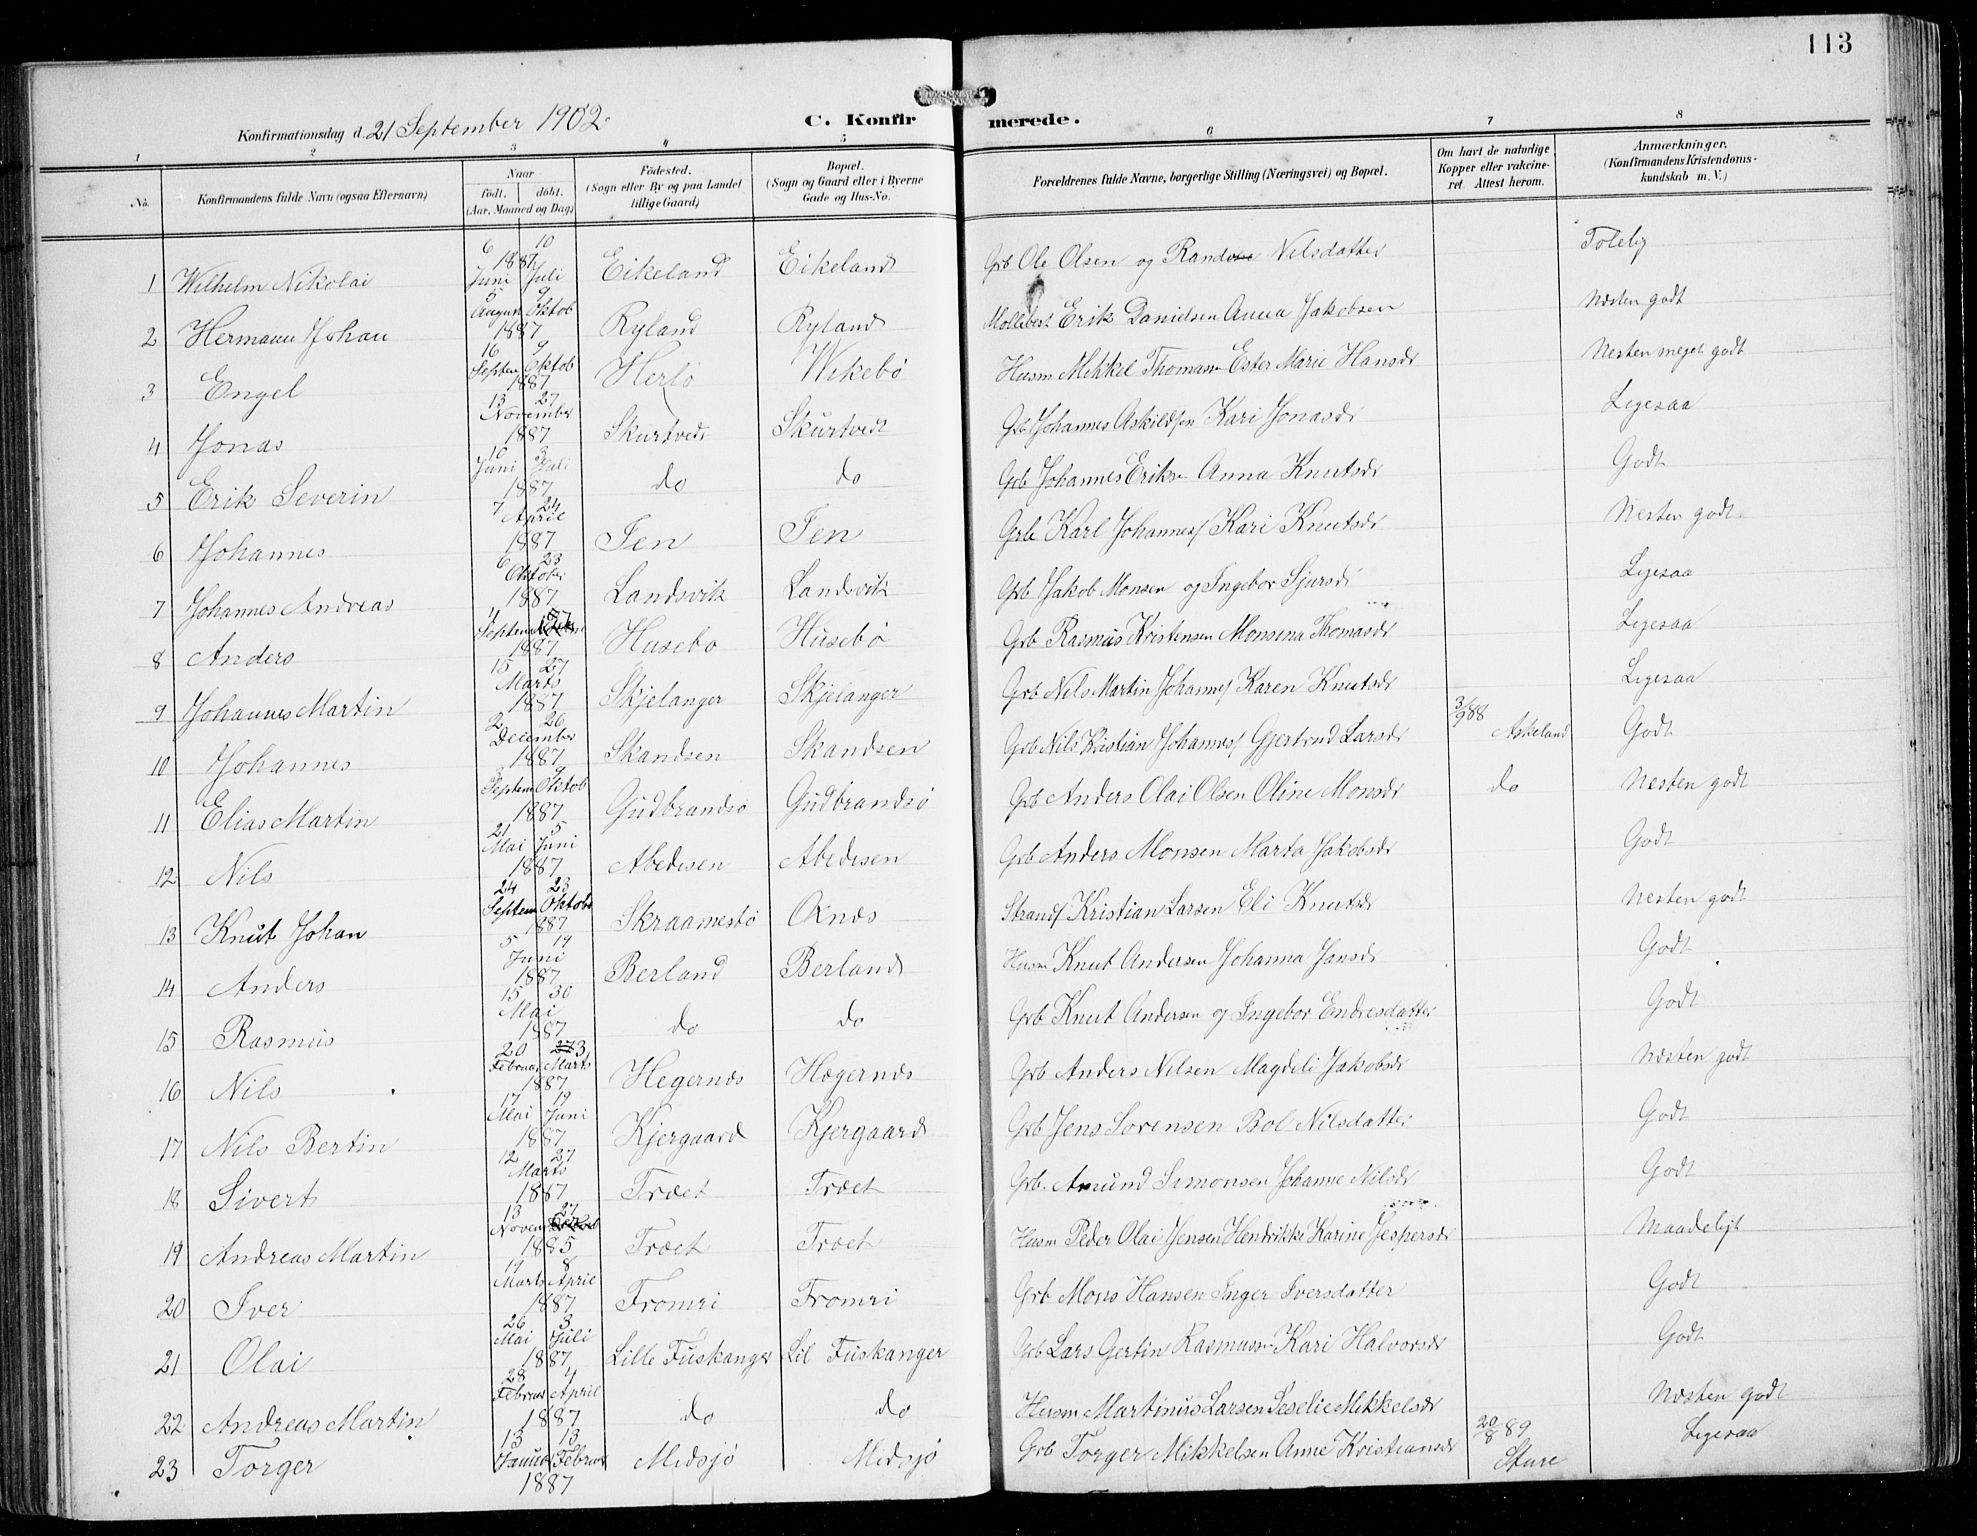 113
Konfirmationsdag d. 21 September 1902.
C. Konfirmerede.
1 2 3 4 5 6 7 8
No.
Konfirmandens fulde Navn (ogsaa Efternavn)
Naar født. døbt. (Aar, Maaned og Dag)
Fødested. (Sogn eller By og paa Landet tillige Gaard)
Bopæl. (Sogn og Gaard eller i Byerne Gade og Hus-No.
Forældrenes fulde Navne, borgerlige Stilling (Næringsvei) og Bopæl.
Om havt de naturlige Kopper eller vakcineret. Attest herom.
Anmærkninger. (Konfirmandens Kristendomskundskab m. V.)
1 Wilhelm Nikolai 6 Juni 10 Juli 1887 Eikeland Eikeland Grb Ole Olsen og Randine Nilsdatter Toleleg
2 Hermann Johan 5 August 9 Oktob 1887 Ryland Ryland Erik Danielsen Anna Jakobsen Næsten godt
3 Engel 16 Septem 9 Oktob 1887 Herlø Wikebø Husm Mikkel Thomasen Ester Marie Hansdr Nesten meget godt
4 Jonas 13 27 November 1887 Skurtvedt Skurtvedt Grb Johannes Askildsen Kari Jonasdr Ligesaa
5 Erik Severin 10 Juni 3 Juli 1887 do do Grb Johannes Eriksen Anna Knutsdr Godt
6 Johannes 7 24 April 1887 Ien Ien Grb Karl Johannes Kari Knutsdr Nesten godt
7 Johannes Andreas 6 23 Oktober 1887 Landsvik Landsvik Grb Jakob Monsen og Ingebor Sjursdr Ligesaa
8 Anders 4 Septem 1887 Husebo Husebø Grb Rasmus Kristensen Monsina Thomasdr Ligesaa
9 Johannes Martin 15 27 Marts 1887 Skjelanger Skjelanger Grb Nils Martin Johannes Karen Knutsdr Ligesaa
10 Johannes 2 26 December 1887 Skandsen Skandsen Grb Nils Kristian Johannes Gjertrud Larsdr 3/9 88 Askeland Godt
11 Elias Martin 3 Septem 9 Oktob 1887 Gudbrandsø Gudbrandsø Grb Anders Olai Olsen Oline Monsdr do Nesten godt
12 Nils 21 Mai 5 Juni 1887 Abedesen Abedesen Grb Anders Monsen Marta Jakobsdr Godt
13 Knut Johan 24 Septem 23 Oktober 1887 Skraamestø Oxnæs Strands Kristian Larsen Eli Knutsdr Nesten godt
14 Anders 5 19 Juni 1887 Berland Berland Husm Knut Andersen Johanna Jansdr Godt
15 Rasmus 15 30 Mai 1887 do do Grb Knut Andersen og Ingebor Endresdatter Godt
16 Nils 20 Februar 3 Marts 1887 Hegernæs Hægernæs Grb Anders Nilsen Magdeli Jakobsdr Næsten godt
17 Nils Bertin 17 Mai 19 Juni 1887 Kjergaard Kjergaard Grb Jens Sørensen Bol Nilsdatter Godt
18 Sivert 12 27 Marts 1887 Træet Træet Grb. Amund Simonsen Johanne Nilsdr Godt
19 Andreas Martin 13 27 Novem 1885 Træet Træet Husm Peder Olai Jensen Hendrikke Karine Jespersdr Maadeligt
20 Iver 19 Marts 8 April 1887 Fromri Fromri Grb Mons Hansen Inger Iversdatter Godt
21 Olai 26 Mai 3 Juli 1887 Lille Fuskanger Lil Fuskanger Grb Lars Gertin Rasmussen Kari Halvorsdr Godt
22 Andreas Martin 28 Februar 4 April 1887 do do Husm Martinus Larsen Seselie Mikkelsdr Næsten godt
23 Torger 13 Januar 13 Februar 1887 Midsjø Midsjø Grb Torger Mikkelsen Anne Kristiansdr 20/8 89 Sture Ligesaa